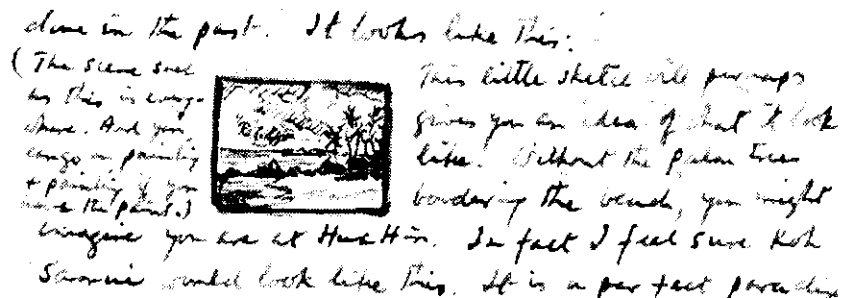 done in the past. It looks like this:
(The scene such
as this is every-
where. And you
can go on painting
+ painting if you
have the paint.)
This little sketch will perhaps
gives you an idea of what it look
like. Without the palm trees
bordering the beach, you might
imagine you are at Hua Hin. In fact I feel sure Koh
Samui would look like this. It is a perfect paradise